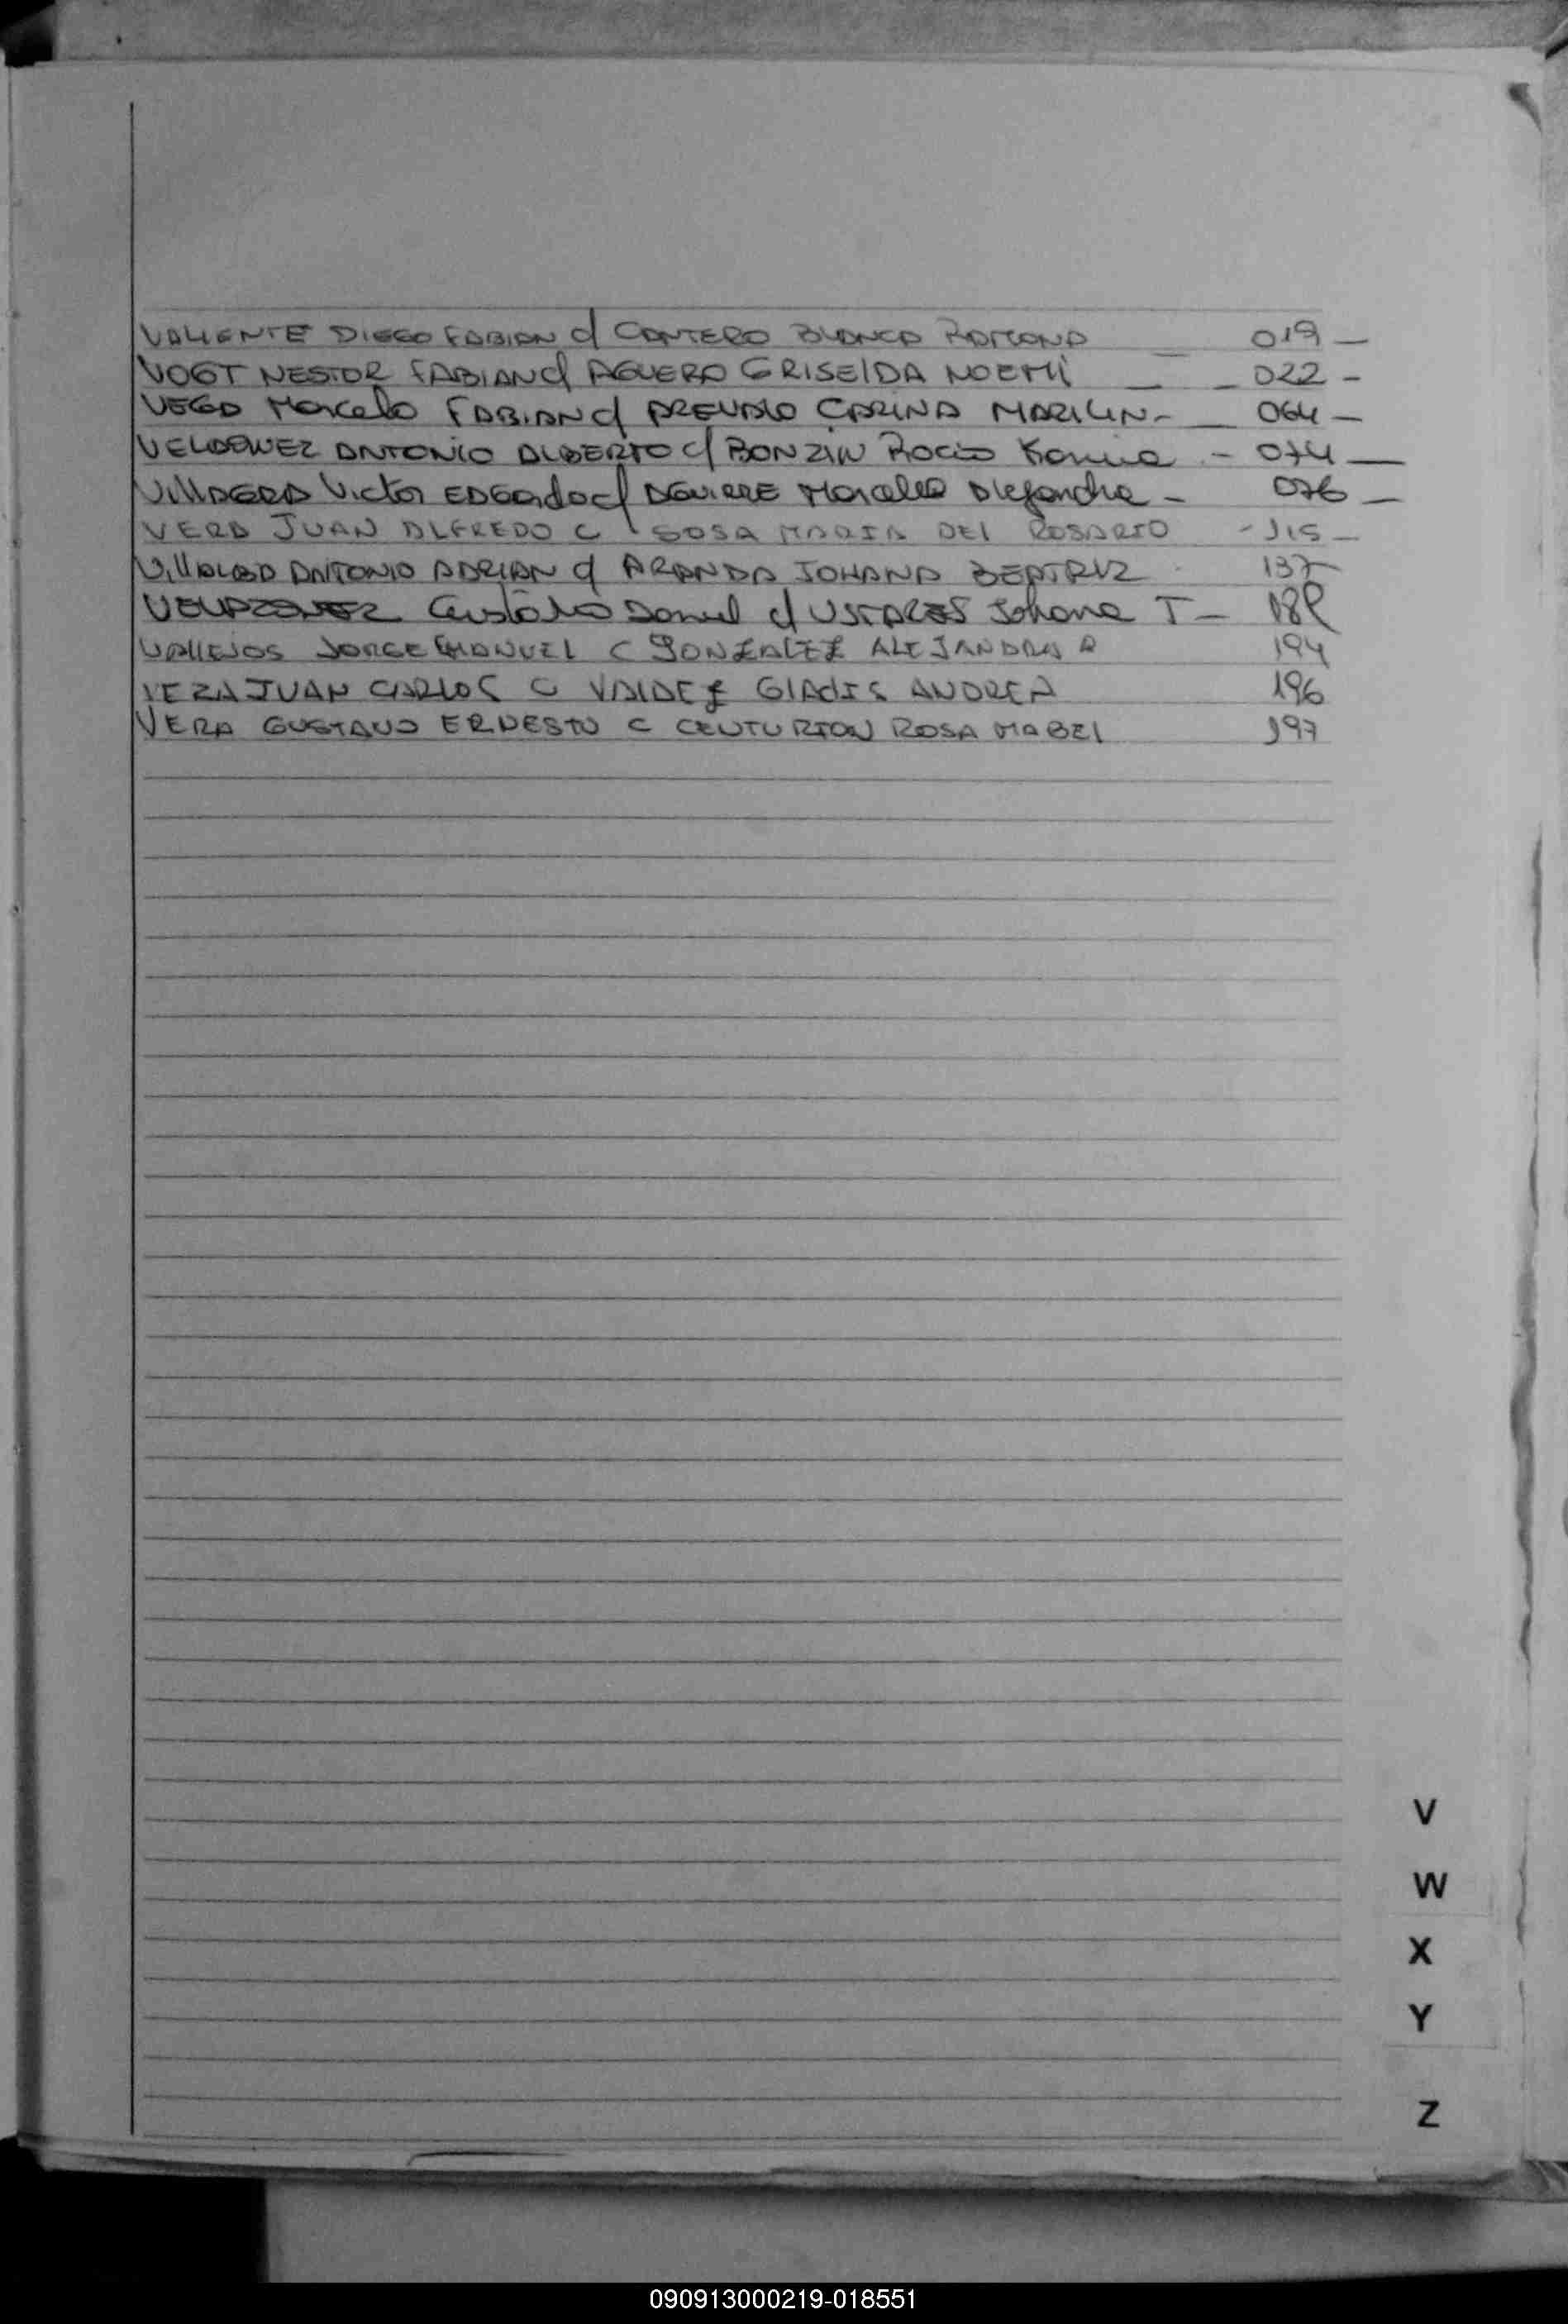 VALIENTE DIEGO FABIAN c/ CANTERO BLANCA RAMONA 019 —
VOGT NESTOR FABIAN c/ AGUERO GRISElDA NOEMÍ — — 022 -
VEGA Marcelo FABIAN c/ AREVALO CARINA MARILIN - — 064 —
VELASQUEZ ANTONIO ALBERTO c/ BONZIN Rocio Karina - 074 —
VillAGRA Victor EDGardo c/ AGUIRRE Marcela Alejandra - 076 —
VERA JUAN ALFREDO C SOSA MARIA DEl ROSARIO - 115 —
VillALBA ANTONIO ADRIAN c/ ARANDA JOHANA BEATRIZ 137
Gustavo Daniel c/ Johana T —
VAllEJOS JORGE EMANUEL C GONZALEZ ALEJANDRA R 194
VERA JUAN CARLOS C VALDEZ GlAdIS ANDREA 196
VERA GUSTAVO ERNESTO C CENTURION ROSA MABEl 197
V
W
X
Y
Z
090913000219-018551